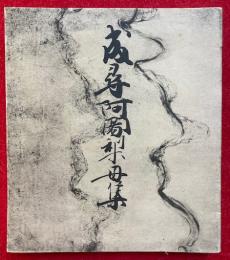 成尋阿闍梨母集